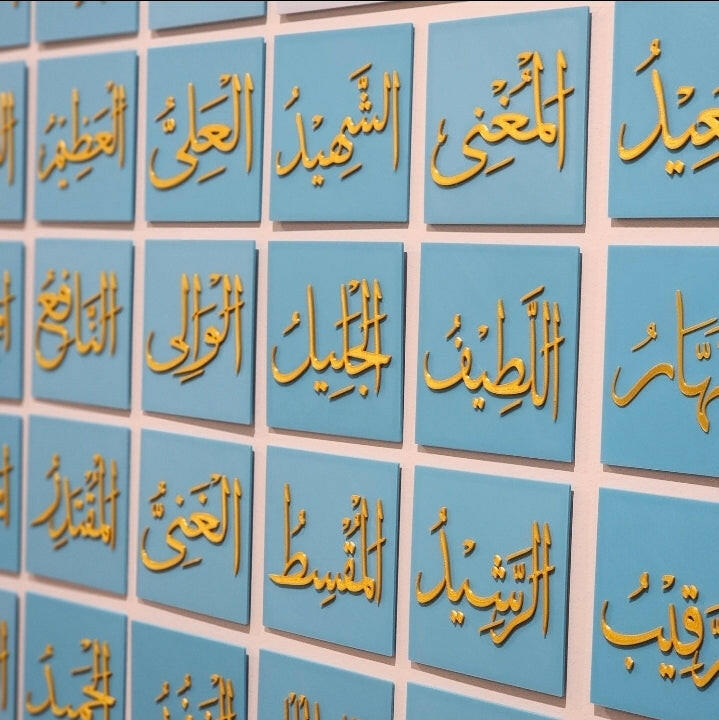 عِيْدُ المُغْنِى الشَّهِيْدُ العَلِىُّ العَظِيْمُ
هَّارُ اللَّطِيْفُ الجَلِيْلُ الوَالِى النَّافِعُ
رَقِيْبُ الرَّشِيْدُ المُقْسِطُ الغَنِىُّ المُقْتَدِرُ
الحَمِيْدُ